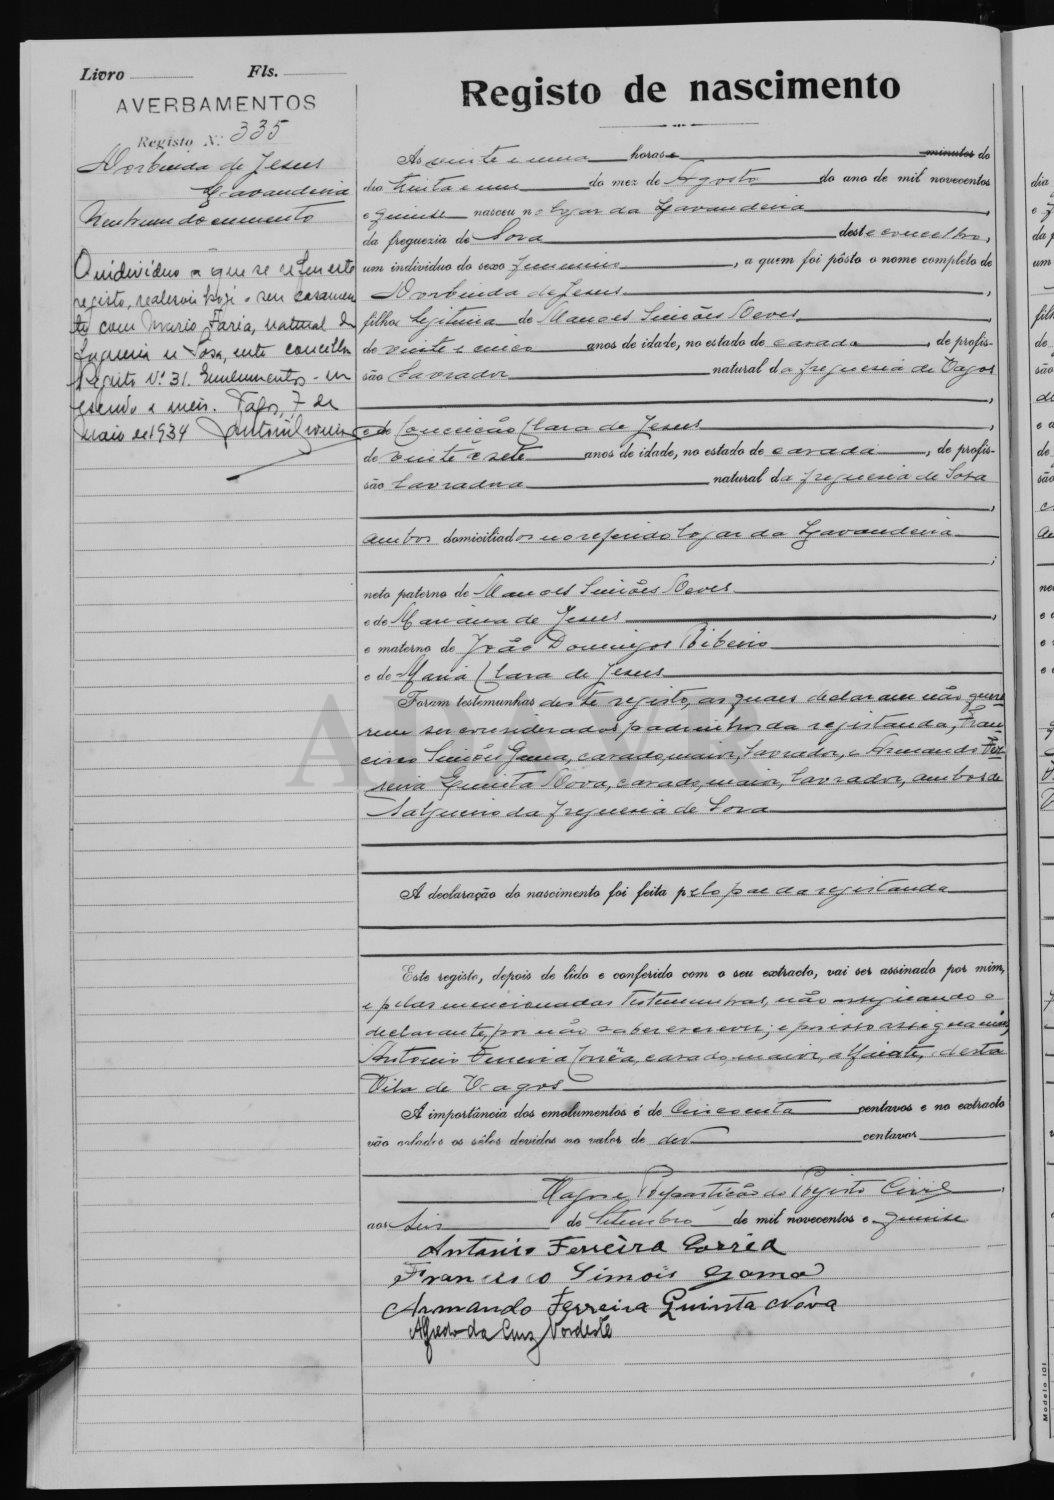 Livro Fls.
AVERBAMENTOS
Registo N.º 335
de Jesus
Lavandeira
Nenhum documento
O individuo a que se refere este
registo, realisou hoje o seu casamen
to com Mario Faria, natural da
freguesia de Sosa, este concelho
Registo N.º 31. Emolumentos - um
escudo e meio. Vagos, 7 de
Maio de 1934
Registo de nascimento
Às vinte e uma horas e minutos do
dia trinta e um do mez de Agosto do ano de mil novecentos
e quinse nasceu no logar da Lavandeira,
da freguezia de Sosa deste concelho,
um individuo do sexo feminino, a quem foi pôsto o nome completo de
de Jesus,
filha legitima de Manoel Simões Neves,
de vinte e cinco anos de idade, no estado de casado, de profis-
são lavrador natural da freguesia de Vagos
,
e de Conceição Clara de Jesus,
de vinte e sete anos de idade, no estado de casada, de profis-
são lavradora natural da freguesia de Sosa
,
ambos domiciliados no referido logar da Lavandeira
;
neto paterno de Manoel Simões Neves
e de Mariana de Jesus,
e materno de João Domingos Ribeiro
e de Maria Clara de Jesus
Foram testemunhas deste registo, as quaes declaram não quere
rem ser considerados padrinhos da registanda, Fran
cisco Simões Gama, casado, maior, lavrador, e Armando Fer
reira Quinta Nova, casado, maior, lavrador, ambos de
Salgueiro da freguesia de Sosa
A declaração do nascimento foi feita pelo pae da registanda
Este registo, depois de lido e conferido com o seu extracto, vai ser assinado por mim,
e pelas mencionadas testemunhas, não assignando o
declarante, por não saber escrever; e por isso assigna
Antonio Ferreira Corrêa, casado, maior, alfaiate, desta
Vila de Vagos
A importância dos emolumentos é de cincoenta centavos e no extracto
vão colados os sêlos devidos no valor de dez centavos
Vagos e Repartição do Registo Civil,
aos seis de Setembro de mil novecentos e quinse
Antonio Ferreira Corrêa
Francisco Simois Gama
Armando Ferreira Quinta Nova
Alfredo da Cruz Nordeste
Modelo 101